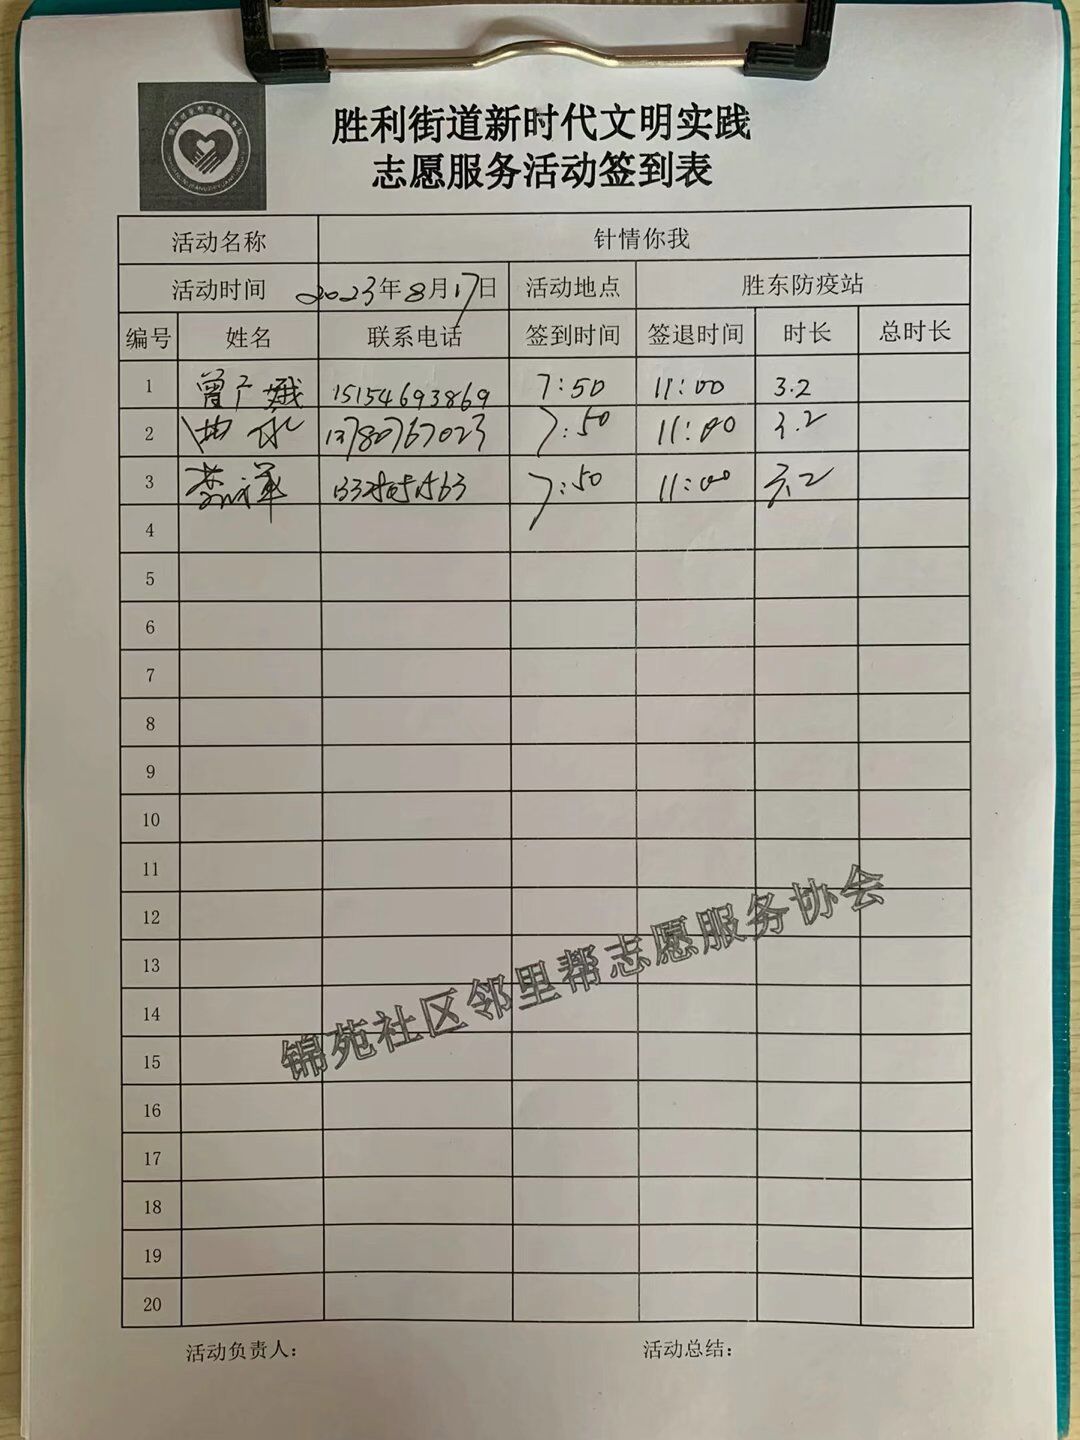 胜利街道新时代文明实践
志愿服务活动签到表
活动名称 针情你我
活动时间 2023年8月17日 活动地点 胜东防疫站
编号 姓名 联系电话 签到时间 签退时间 时长 总时长
1 曾广娥 15154693869 7:50 11:00 3.2
2 曲 13780767023 7:50 11:00 3.2
3 7:50 11:00 3.2
4
5
6
7
8
9
10
11
12
13
14
15
16
17
18
19
20
锦苑社区邻里帮志愿服务协会
活动负责人： 活动总结：